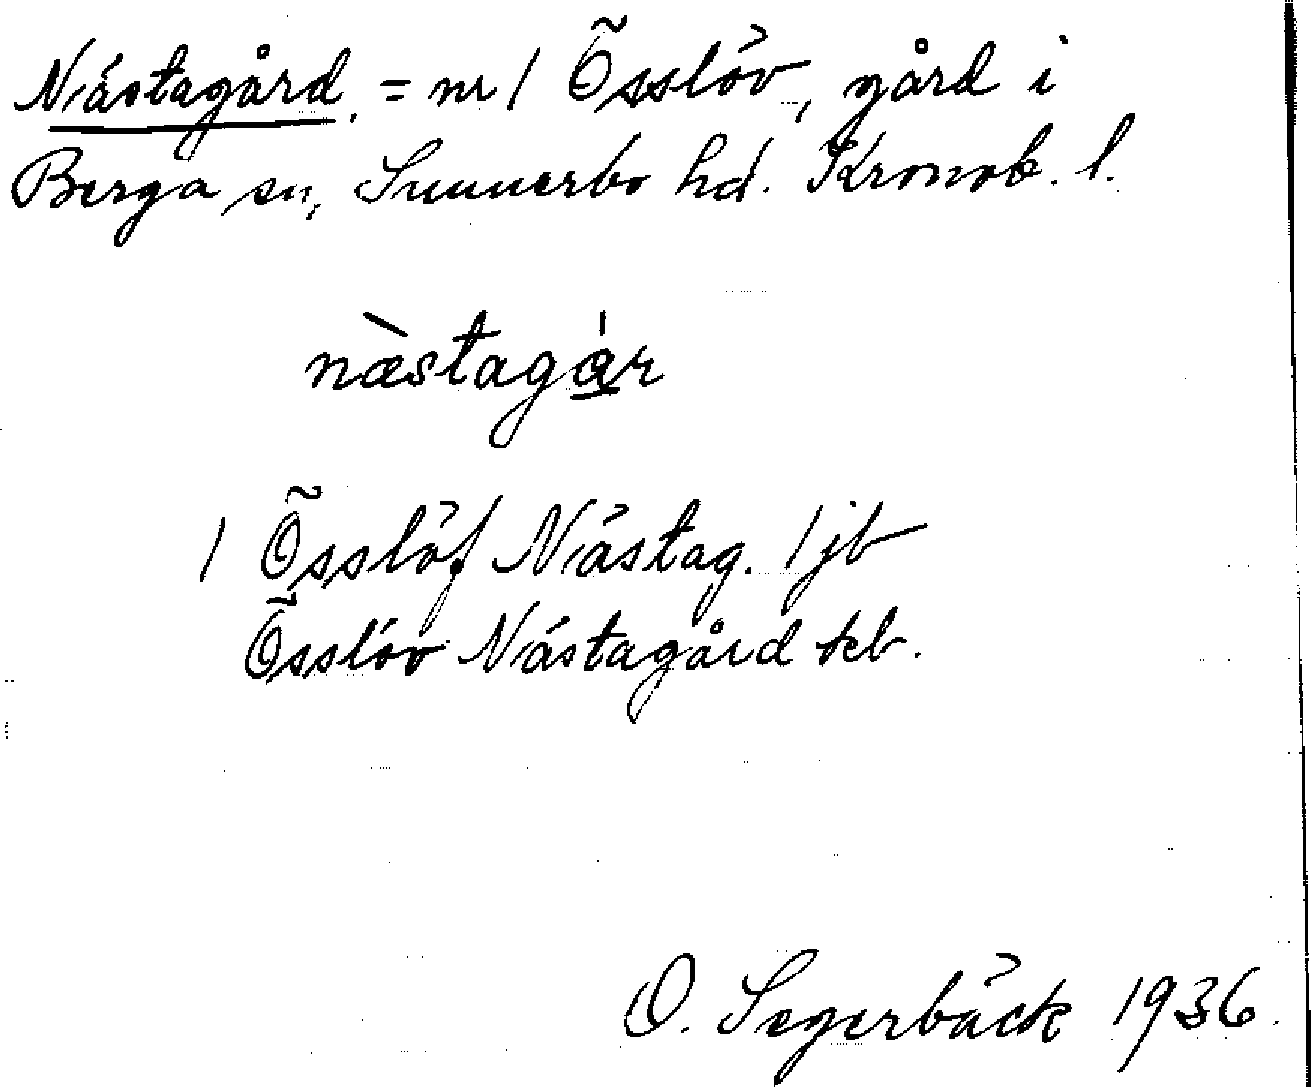 Nästagård. = nr 1 Össlöv, gård i
Berga sn, Sunnerbo hd. Kronob. l.
næ̀stagá̱r
1 Össlöf Nästag. 1 jb
Össlöv Nästagård tcb.
O. Segerbäck 1936.